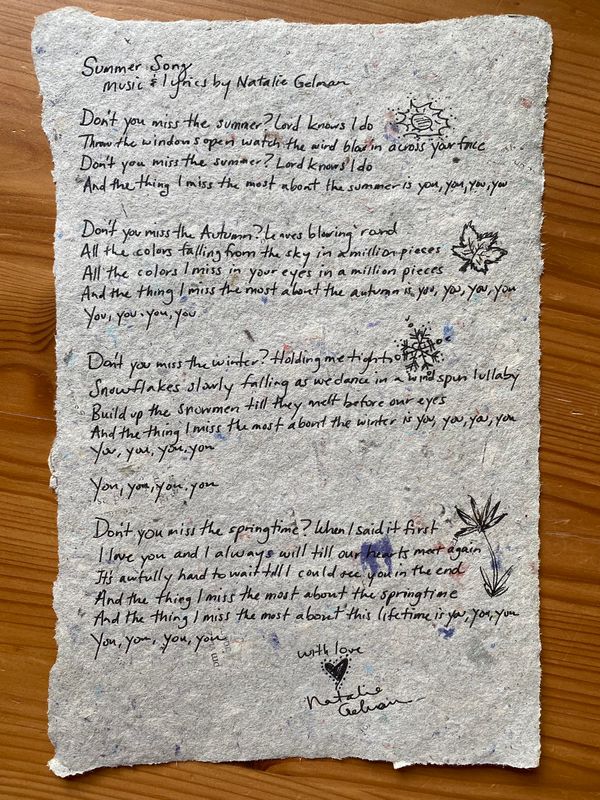 Summer Song
music & lyrics by Natalie Gelman
Don't you miss the summer? Lord knows I do
Throw the windows open watch the wind blow in across your face
Don't you miss the summer? Lord knows I do
And the thing I miss the most about the summer is you, you, you, you
Don't you miss the Autumn? Leaves blowing 'round
All the colors falling from the sky in a million pieces
All the colors I miss in your eyes in a million pieces
And the thing I miss the most about the autumn is you, you, you, you
You, you, you, you
Don't you miss the winter? Holding me tight
Snowflakes slowly falling as we dance in a wind spun lullaby
Build up the snowmen till they melt before our eyes
And the thing I miss the most about the winter is you, you, you, you
You, you, you, you
You, you, you, you
Don't you miss the springtime? When I said it first
I love you and I always will till our hearts meet again
It's awfully hard to wait till I could see you in the end
And the thing I miss the most about the springtime
And the thing I miss the most about this lifetime is you, you, you
You, you, you, you
with love
Natalie
Gelman